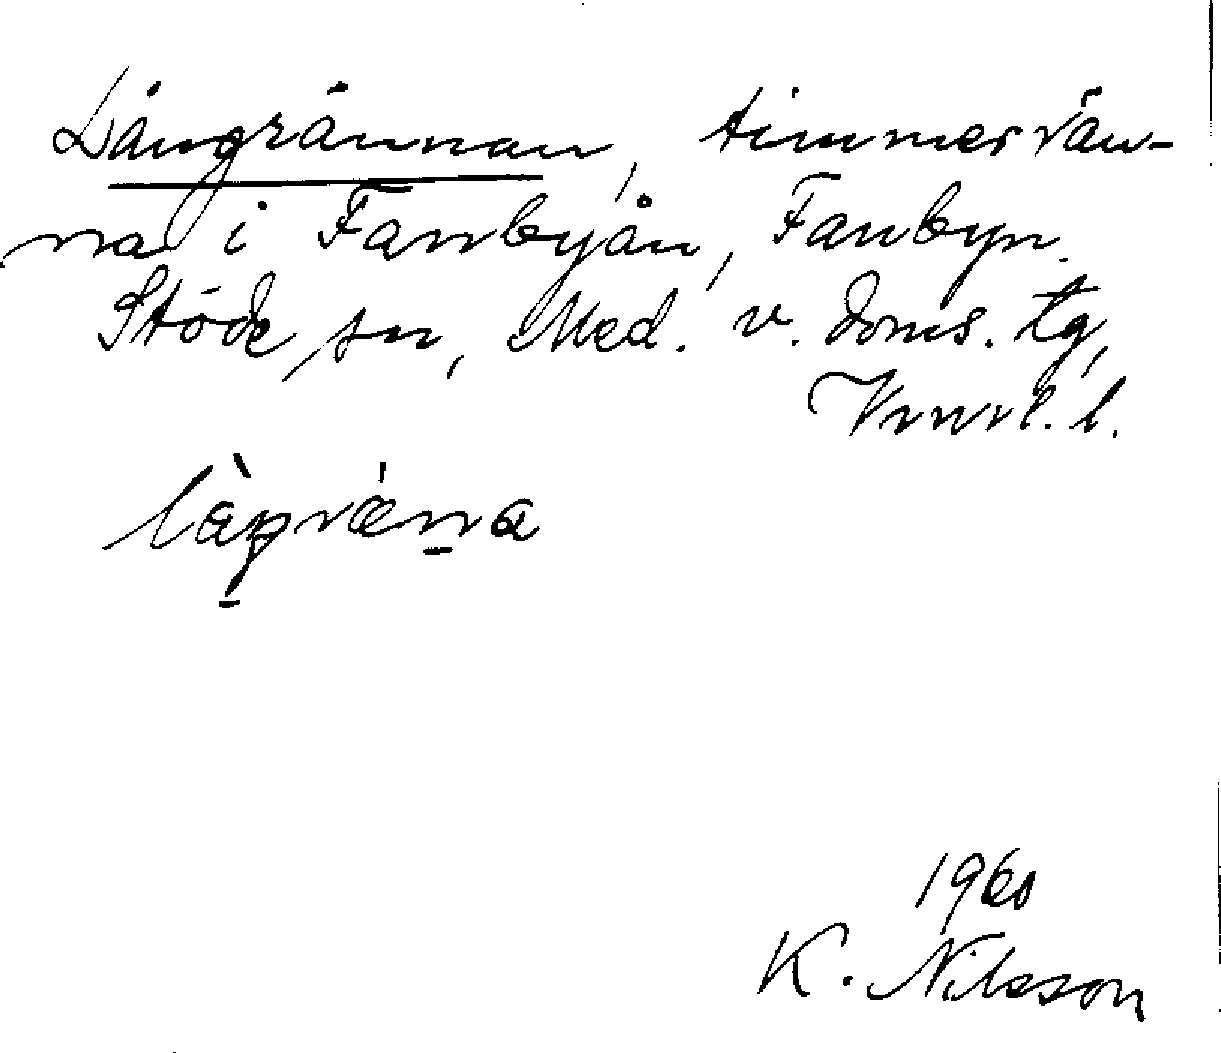 Långrännan, timmerrän-
na i Fanbyån, Fanbyn.
Stöde sn, Med. v. doms. tg,
Vnrl. l.
1960
K. Nilsson